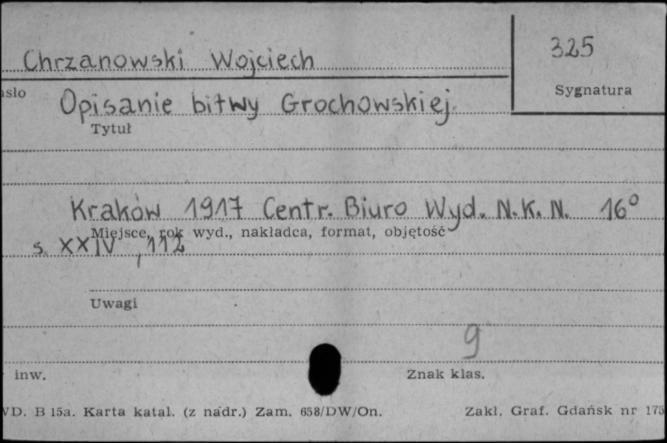 Chrzanowski Wojciech
325
Sygnatura
Opisanie bitwy Grochowskiej.
Tytuł
Kraków 1917 Centr. Biuro Wyd. N.K.N. 16°
Miejsce, rok wyd., nakładca, format, objętość
s. XXIV, 112
Uwagi
9
inw.
Znak klas.
B 15a. Karta katal. (z nadr.) Zam. 658/DW/On.
Zakl. Graf. Gdańsk nr